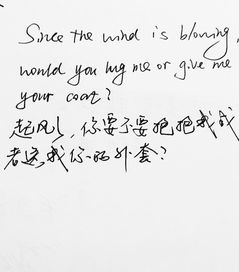 Since the wind is blowing,
would you hug me or give me
your coat?
起风了，你要不要抱抱我或
者送我你的外套？